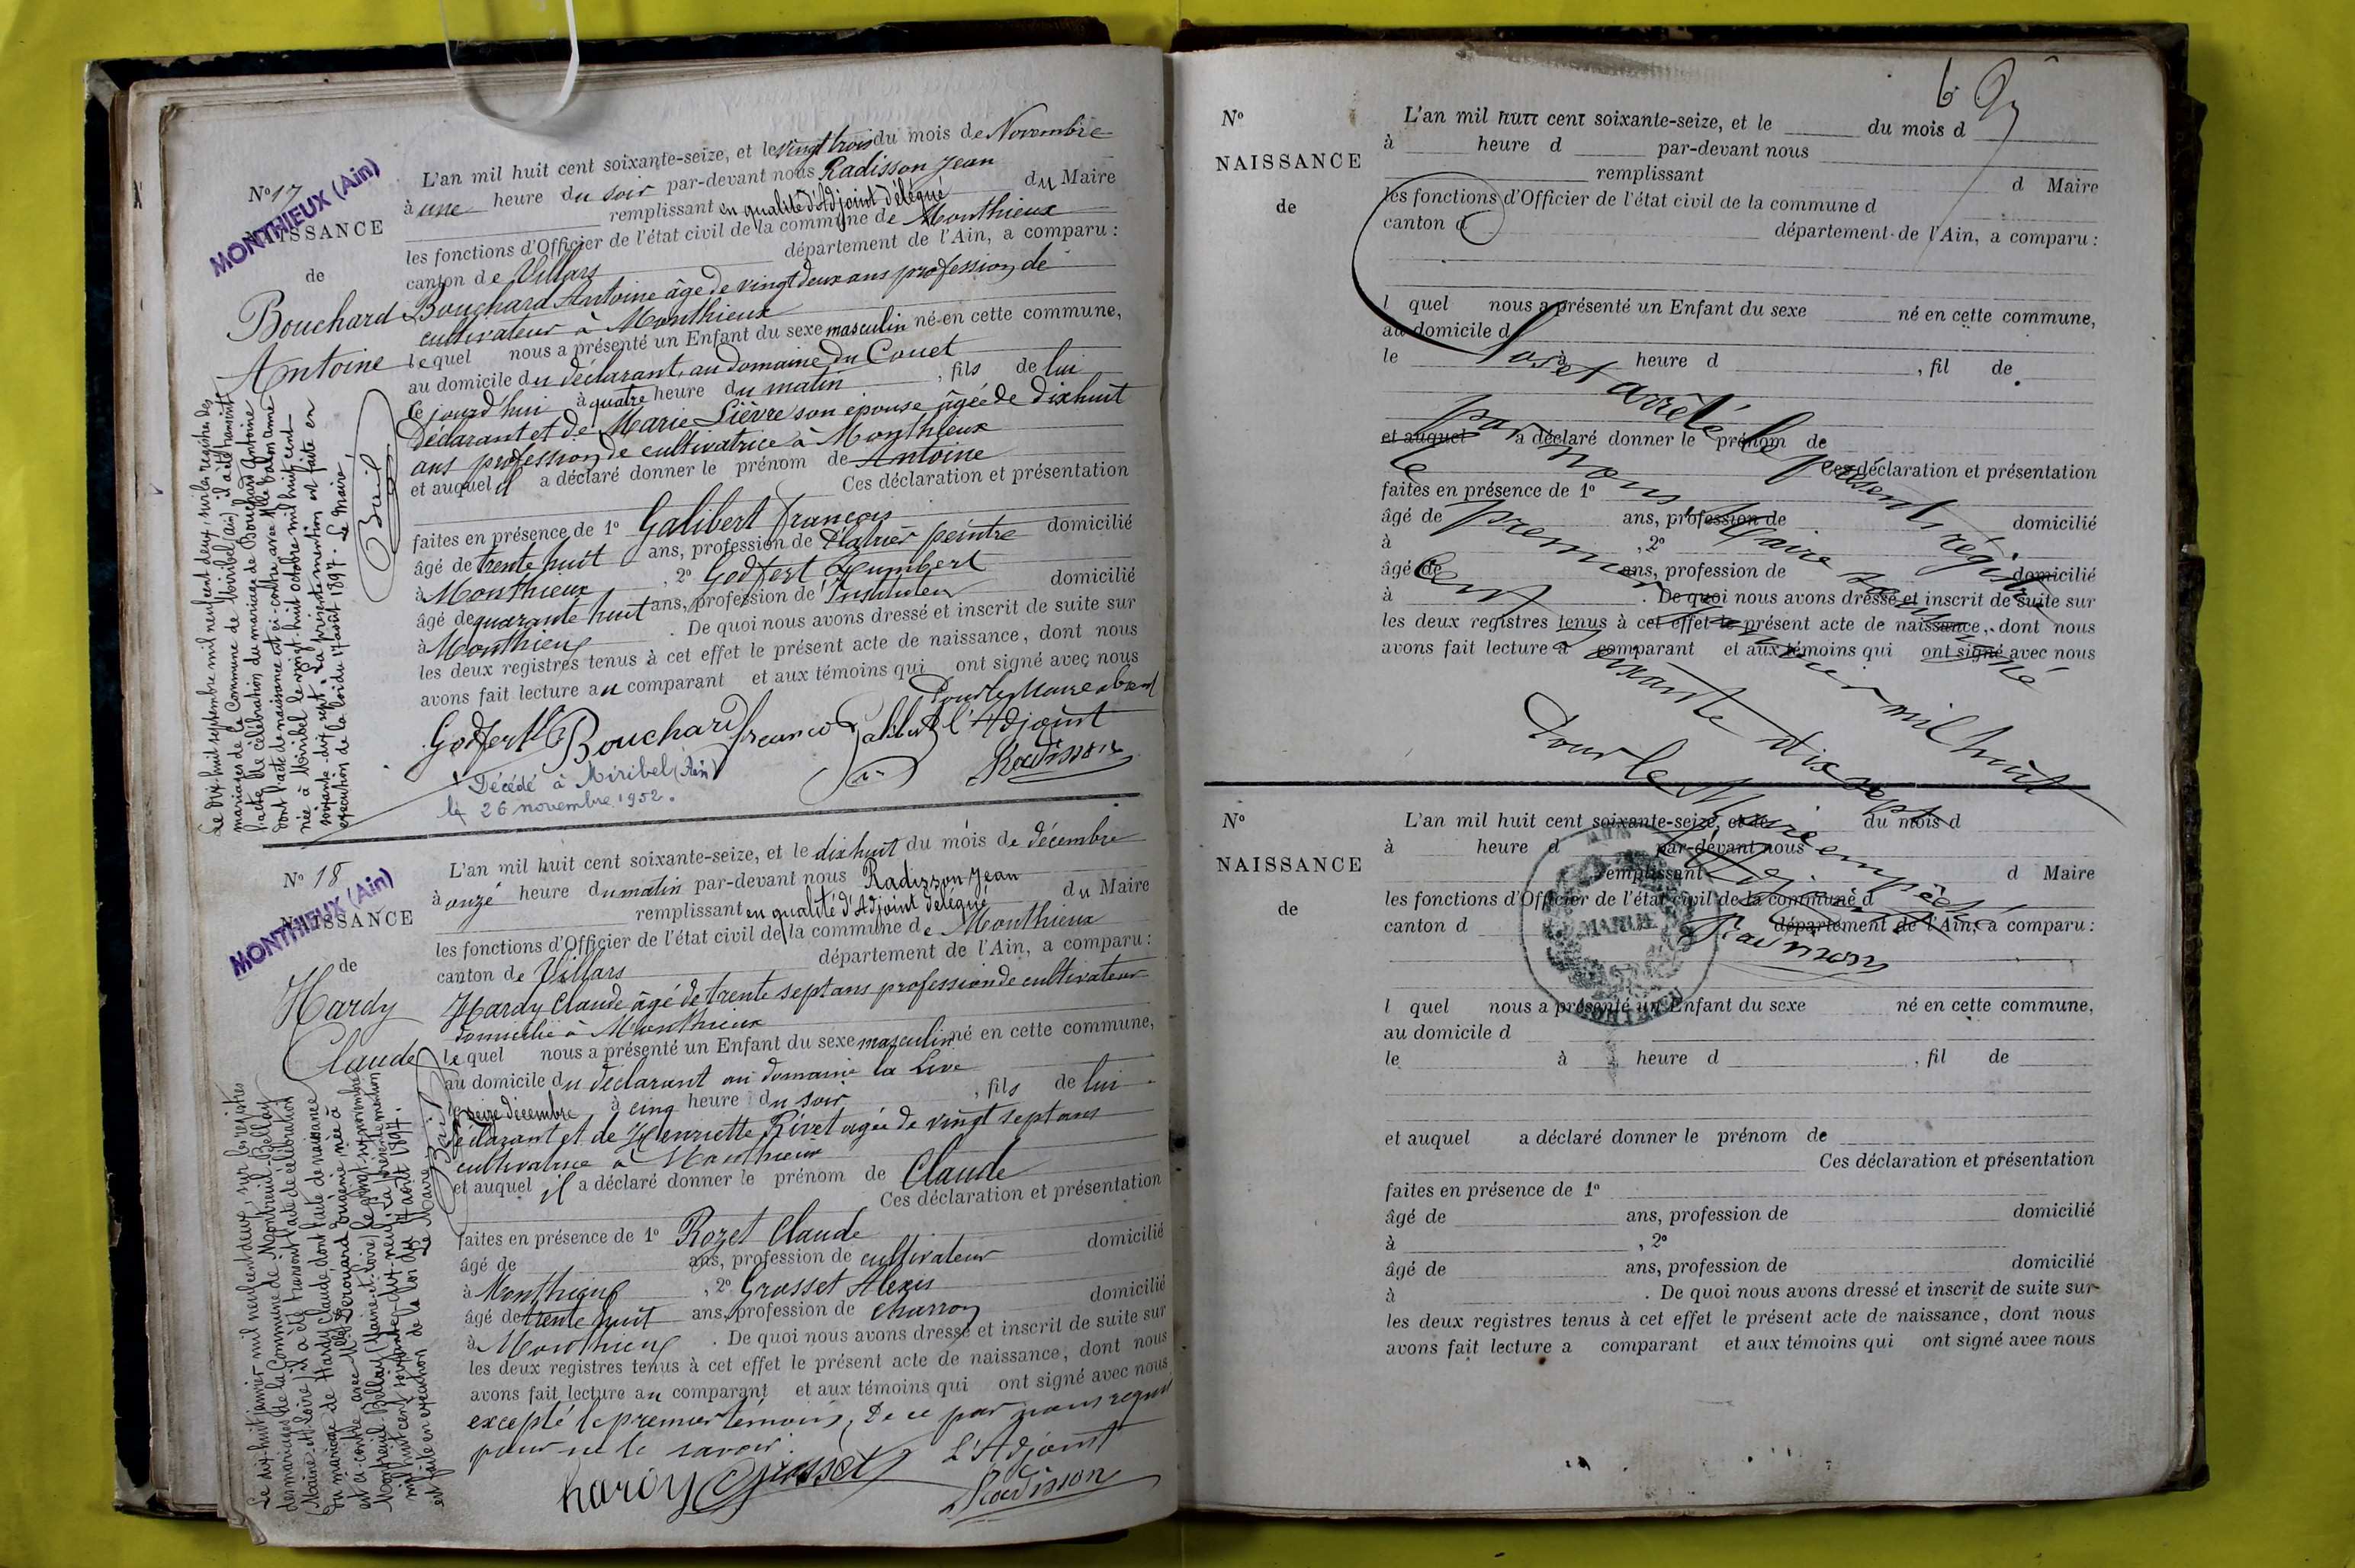 N° 17
MONTHIEUX (Ain)
NAISSANCE
de
Bouchard
Antoine
L'an mil huit cent soixante-seize, et le vingt trois du mois de Novembre
à une heure du soir par-devant nous Radisson Jean
remplissant en qualité d'Adjoint délégué du Maire
les fonctions d'Officier de l'état civil de la commune de Monthieux
canton de Villars département de l'Ain, a comparu :
Bouchard Antoine âgé de vingt deux ans profession de
cultivateur à Monthieux
lequel nous a présenté un Enfant du sexe masculin né en cette commune,
au domicile du déclarant, au domaine du Couet
Ce jourd'hui à quatre heure du matin, fils de lui
déclarant et de Marie Lièvre son épouse âgée de dix huit
ans profession de cultivatrice à Monthieux
et auquel il a déclaré donner le prénom de Antoine
Ces déclaration et présentation
faites en présence de 1° Galibert François
âgé de trente huit ans, profession de Plâtrier peintre domicilié
à Monthieux, 2° Godfert Humbert
âgé de quarante huit ans, profession de Instituteur domicilié
à Monthieux. De quoi nous avons dressé et inscrit de suite sur
les deux registres tenus à cet effet le présent acte de naissance, dont nous
avons fait lecture au comparant et aux témoins qui ont signé avec nous
Pour le Maire absent
Godfert Bouchard Galibert l'Adjoint
Radisson
Décédé à Miribel (Ain)
le 26 novembre 1952.
Le dix huit septembre mil neuf cent deux, sur les registres des
mariages de la Commune de Miribel (Ain) il a été transcrit
l'acte de célébration du mariage de Bouchard Antoine
dont l'acte de naissance est ci-contre avec Melle
née à Miribel le vingt huit octobre mil huit cent
soixante dix sept. La présente mention est faite en
exécution de la loi du 17 août 1897. Le Maire,
N° 18
MONTHIEUX (Ain)
NAISSANCE
de
Hardy
Claude
L'an mil huit cent soixante-seize, et le dix huit du mois de décembre
à onze heure du matin par-devant nous Radisson Jean
remplissant en qualité d'Adjoint délégué du Maire
les fonctions d'Officier de l'état civil de la commune de Monthieux
canton de Villars département de l'Ain, a comparu :
Hardy Claude âgé de trente sept ans profession de cultivateur
domicilié à Monthieux
lequel nous a présenté un Enfant du sexe masculin né en cette commune,
au domicile du déclarant au domaine la Live
le seize décembre à cinq heure du soir, fils de lui
déclarant et de Henriette Rivet agée de vingt sept ans
cultivatrice à Monthieux
et auquel il a déclaré donner le prénom de Claude
Ces déclaration et présentation
faites en présence de 1° Rozet Claude
âgé de ans, profession de cultivateur domicilié
à Monthieux, 2° Grosset Alexis
âgé de trente huit ans, profession de charron domicilié
à Monthieux. De quoi nous avons dressé et inscrit de suite sur
les deux registres tenus à cet effet le présent acte de naissance, dont nous
avons fait lecture au comparant et aux témoins qui ont signé avec nous
excepté le premier témoin, de ce par nous requis
pour ne le savoir.
L'Adjoint
hardy Grosset
Radisson
Le dix-huit janvier mil neuf cent deux, sur les registres
des mariages de la Commune de Montreuil-Bellay
(Maine et Loire) il a été transcrit l'acte de célébration
du mariage de Hardy Claude, dont l'acte de naissance
est ci-contre avec Melle Derouard Eugénie née à
Montreuil-Bellay (Maine et Loire) le
mil huit cent soixante-dix-neuf. La présente mention
est faite en exécution de la loi du 17 août 1897.
Le Maire
N°
NAISSANCE
de
L'an mil huit cent soixante-seize, et le du mois d
à heure d par-devant nous
remplissant d Maire
les fonctions d'Officier de l'état civil de la commune d
canton d département de l'Ain, a comparu :
l quel nous a présenté un Enfant du sexe né en cette commune,
au domicile d
le à heure d, fil de
et auquel a déclaré donner le prénom de
Ces déclaration et présentation
faites en présence de 1°
âgé de ans, profession de domicilié
à, 2°
âgé de ans, profession de domicilié
à. De quoi nous avons dressé et inscrit de suite sur
les deux registres tenus à cet effet le présent acte de naissance, dont nous
avons fait lecture a comparant et aux témoins qui ont signé avec nous
Clos et arrêté le présent registre
par nous Maire soussigné
le premier janvier mil huit
cent soixante dix sept
Pour le Maire empêché
l'Adjoint
Radisson
N°
NAISSANCE
de
L'an mil huit cent soixante-seize, et le du mois d
à heure d par-devant nous
remplissant d Maire
les fonctions d'Officier de l'état civil de la commune d
canton d département de l'Ain, a comparu :
MAIRIE
l quel nous a présenté un Enfant du sexe né en cette commune,
au domicile d
le à heure d, fil de
et auquel a déclaré donner le prénom de
Ces déclaration et présentation
faites en présence de 1°
âgé de ans, profession de domicilié
à, 2°
âgé de ans, profession de domicilié
à. De quoi nous avons dressé et inscrit de suite sur
les deux registres tenus à cet effet le présent acte de naissance, dont nous
avons fait lecture a comparant et aux témoins qui ont signé avec nous